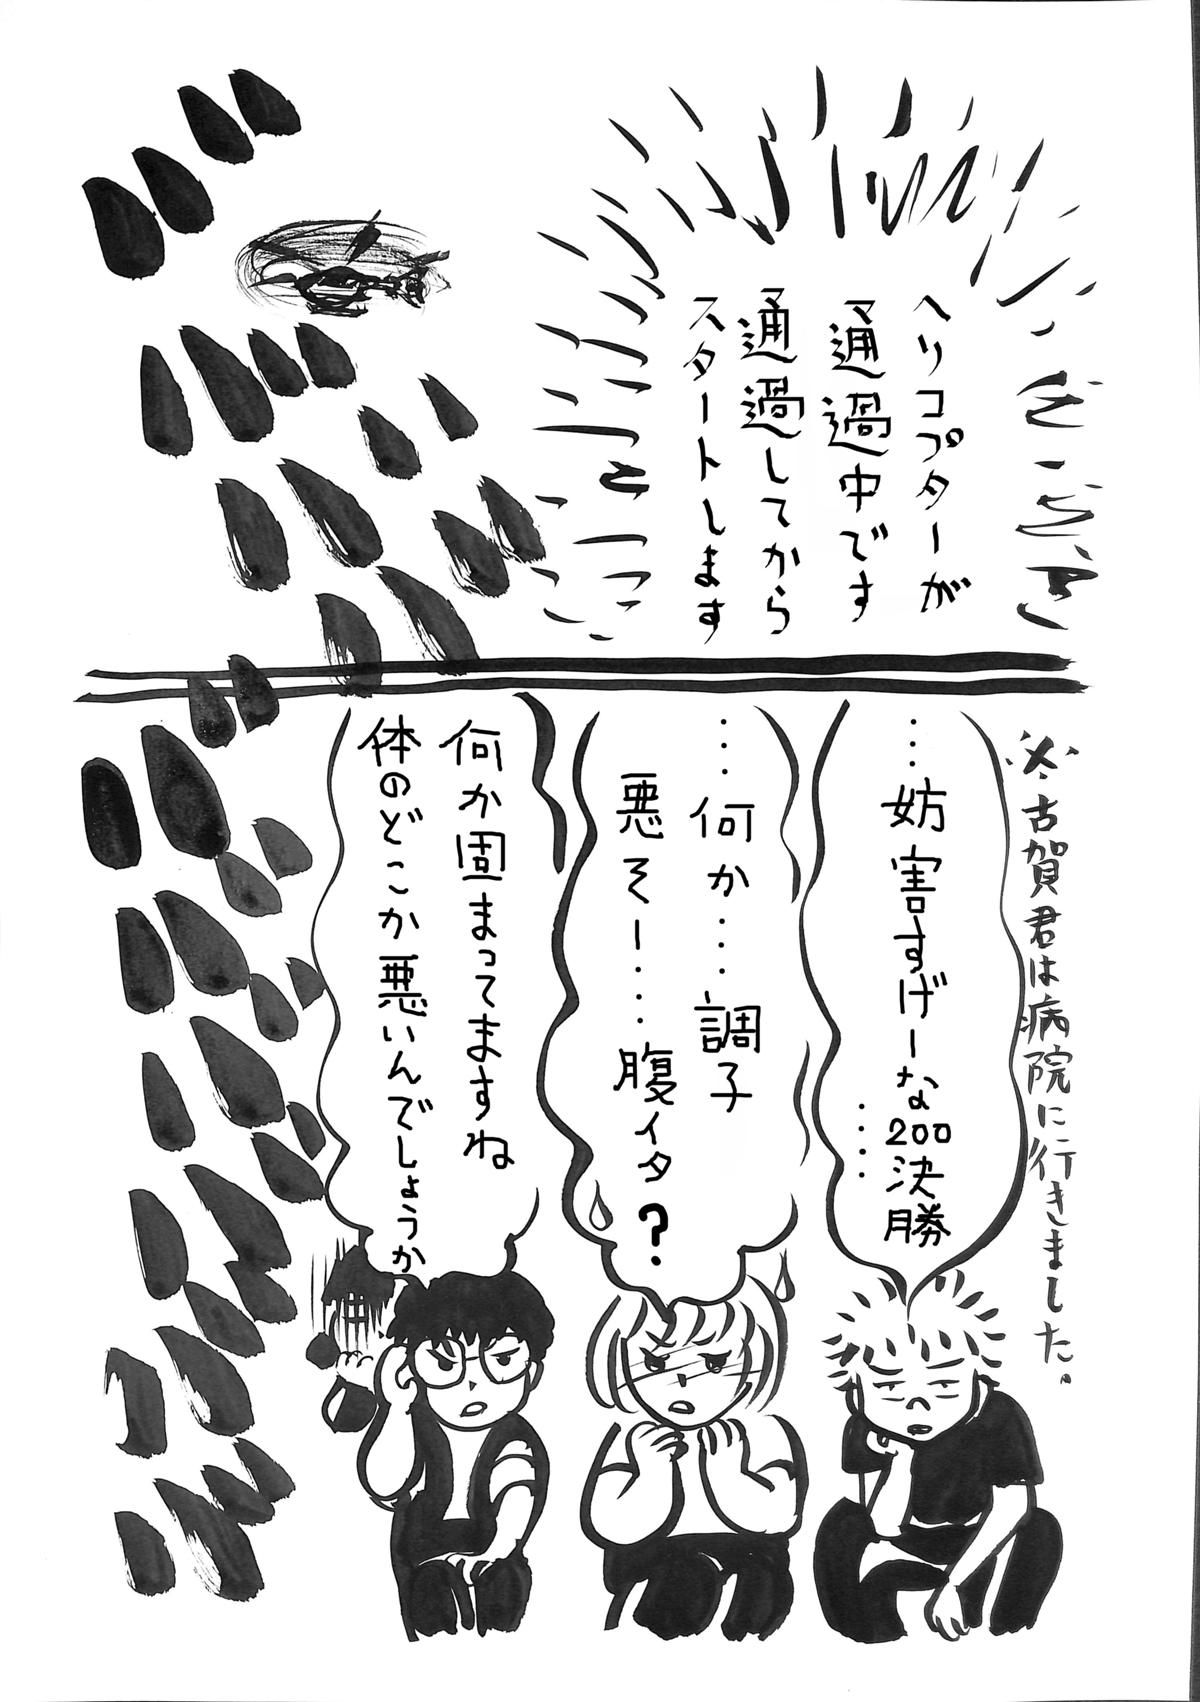 ヘリコプターが
通過中です
通過してから
スタートします
ざわ
※古賀君は病院に行きました。
…妨害すげーな200決勝
……
……何か…調子
悪そー…腹イタ?
何か固まってますね
体のどこか悪いんでしょうか